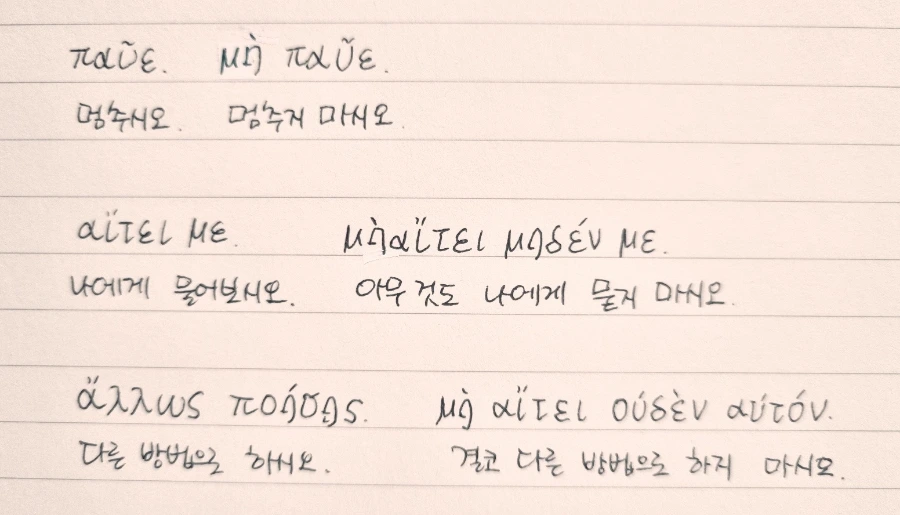 παῦε. μὴ παῦε.
멈추시오. 멈추지 마시오.
αἴτει με. μὴ αἴτει μηδέν με.
나에게 물어보시오. 아무 것도 나에게 묻지 마시오.
ἄλλως ποήσῃς. μὴ αἴτει οὐδὲν αὐτόν.
다른 방법으로 하시오. 결코 다른 방법으로 하지 마시오.